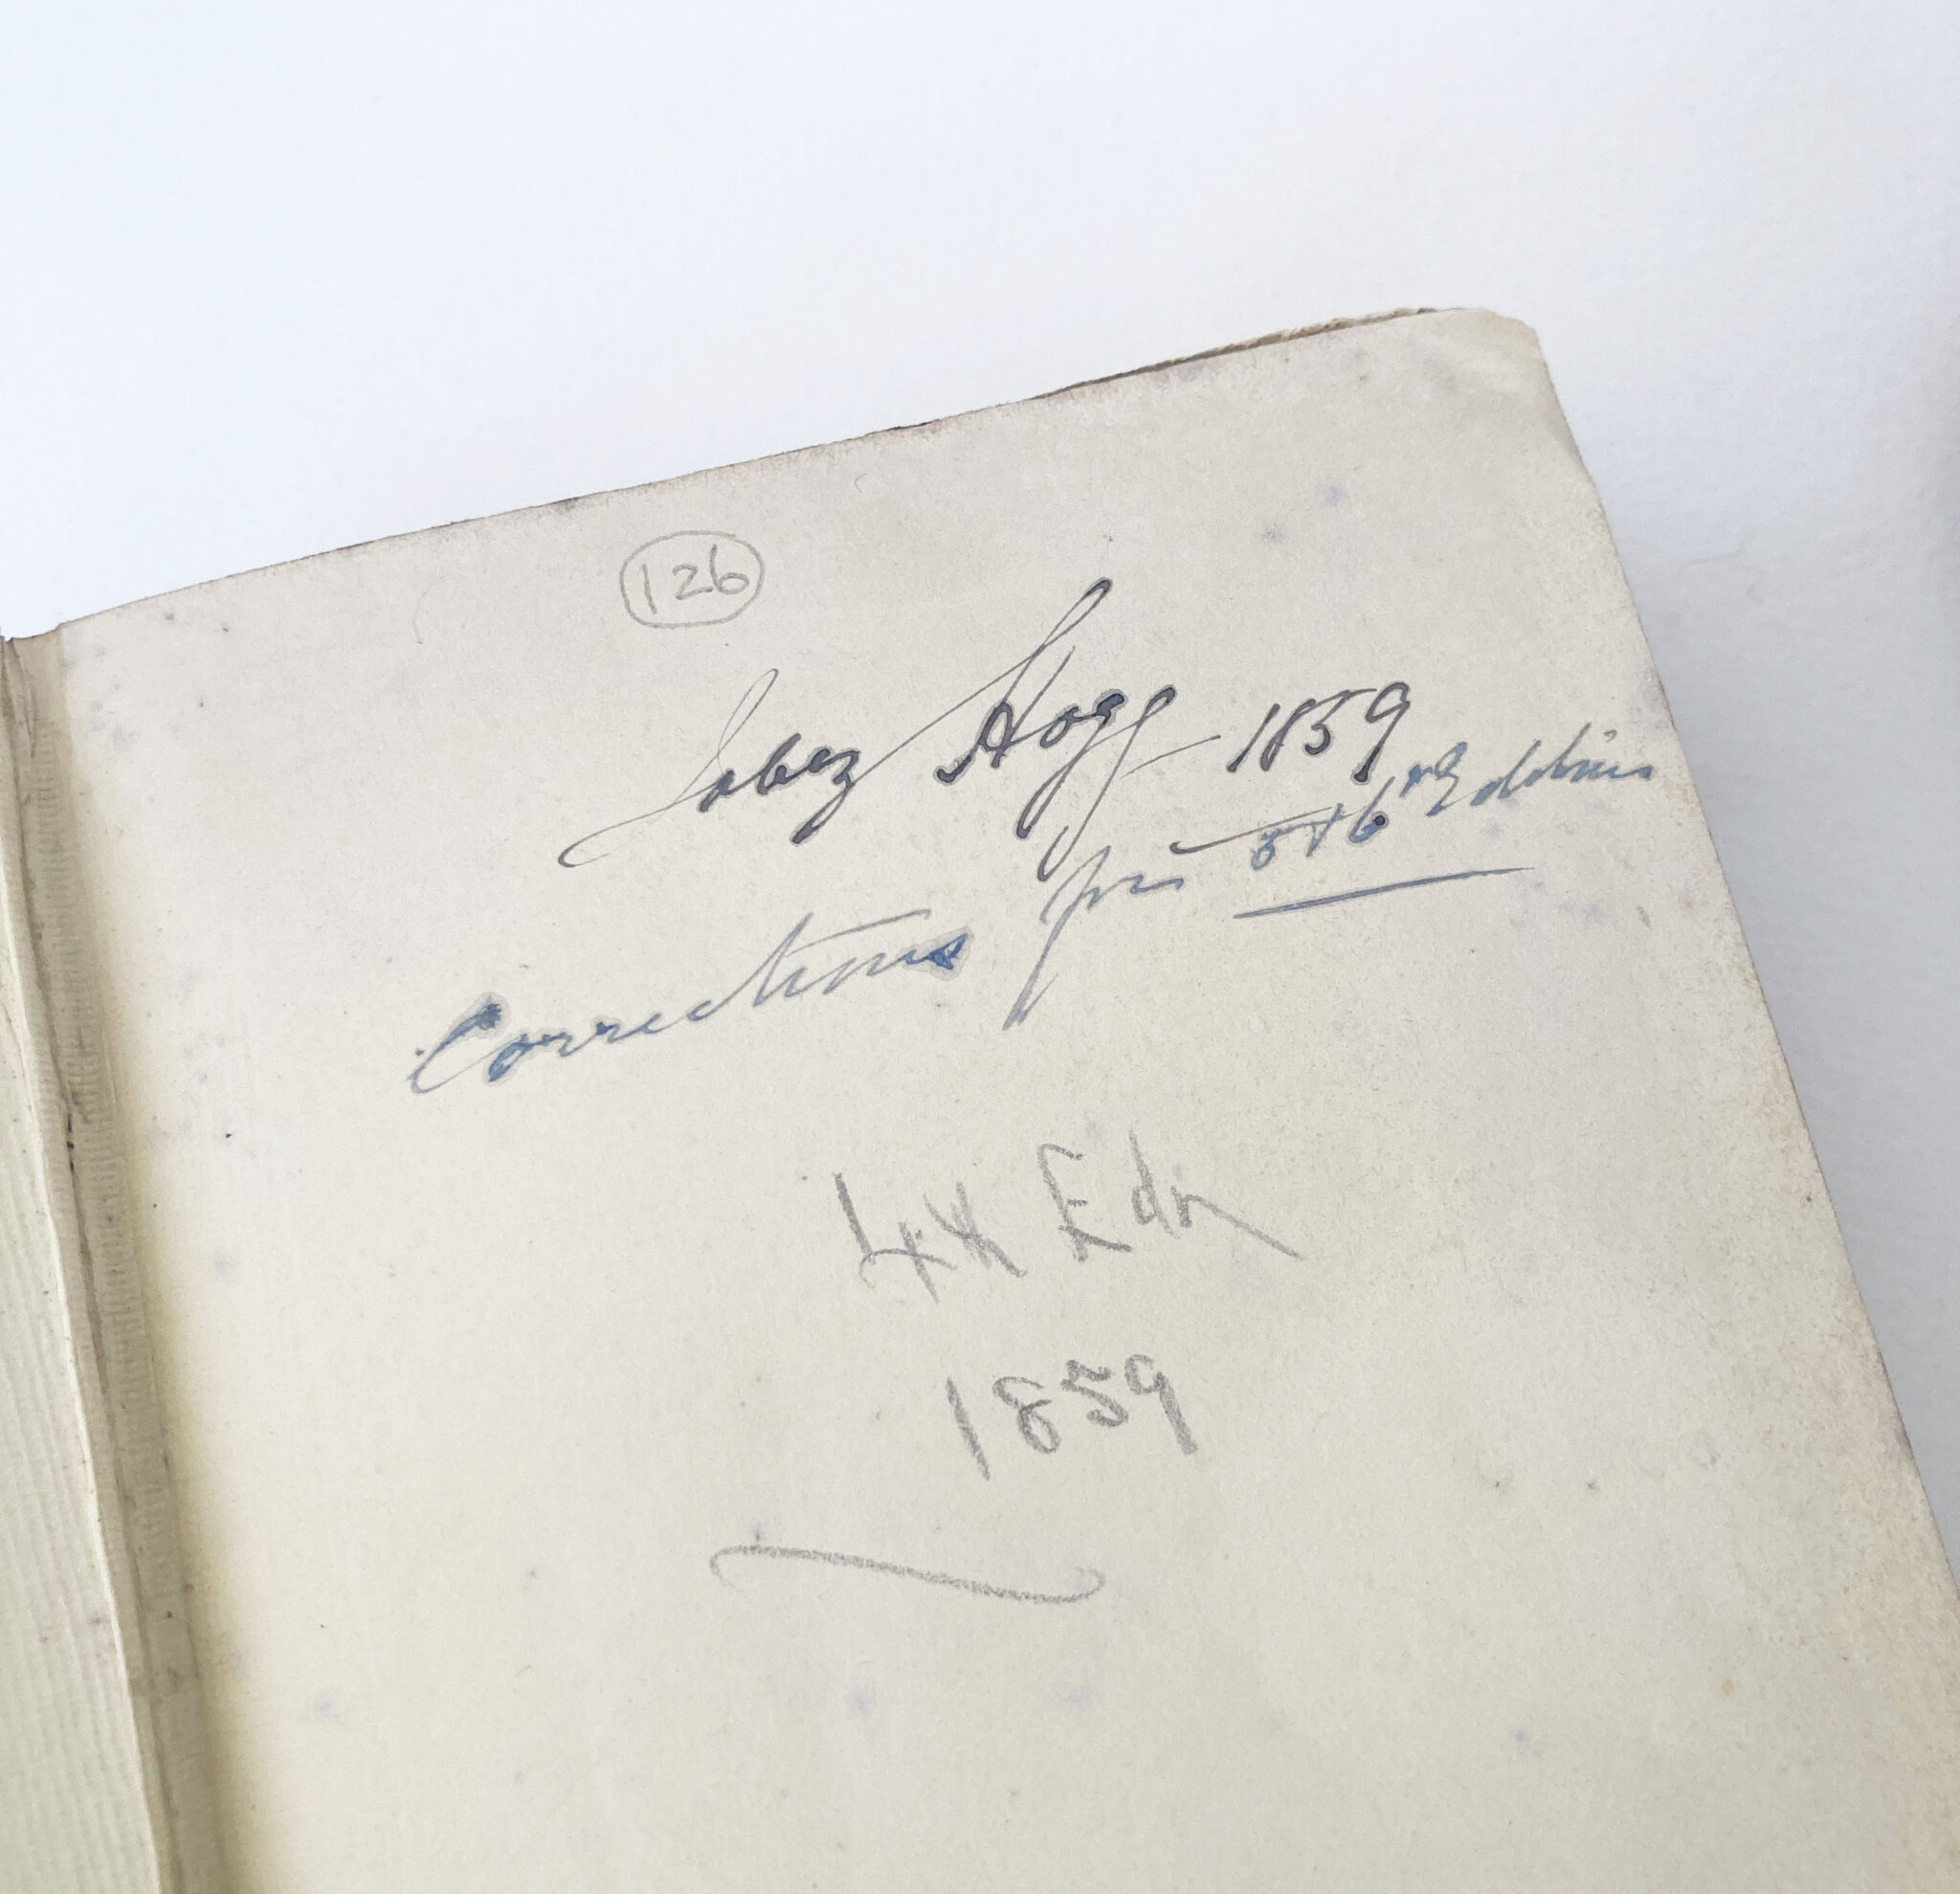 126
Jabez Hogg 1859
Corrections for 5 & 6 Edition
4th Edn
1859